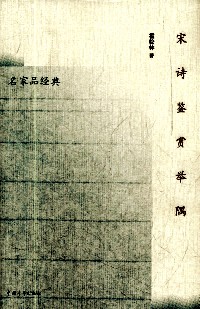 宋诗鉴赏举隅
霍松林 著
名家品经典